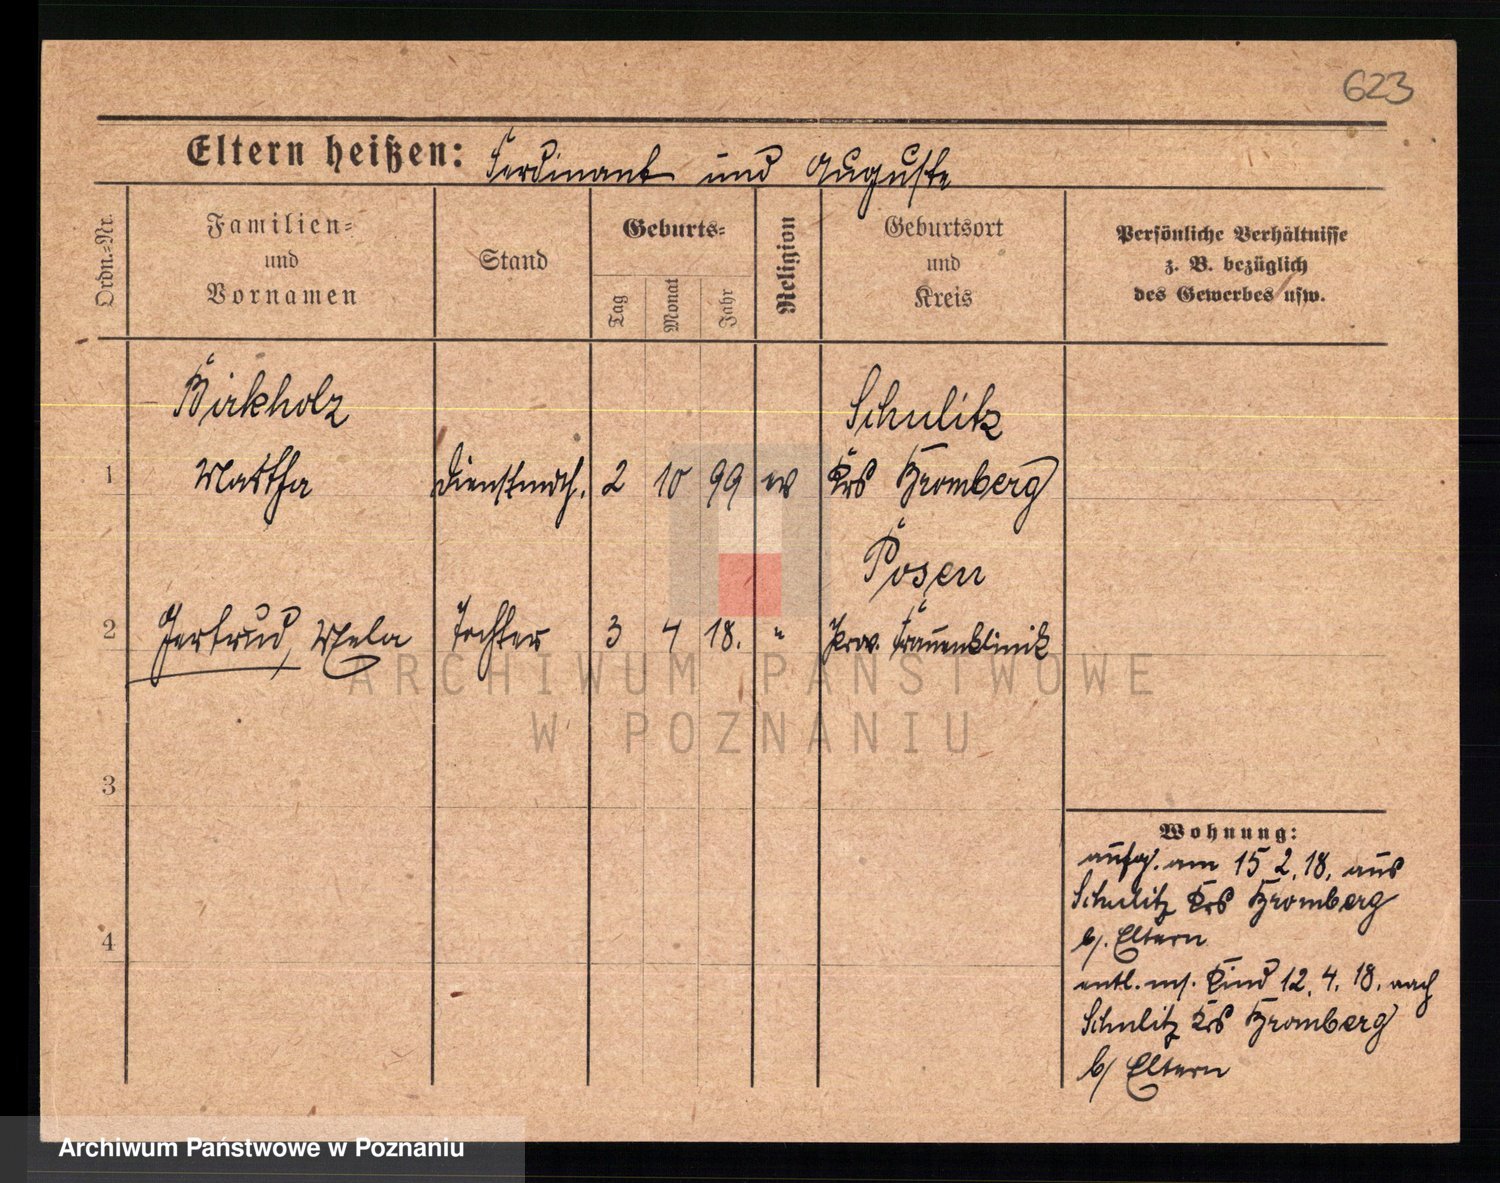 623
Eltern heißen: Ferdinant und Auguste
Ordn.-Nr.
Familien-
und
Vornamen
Stand
Geburts-
Tag
Monat
Jahr
Religion
Geburtsort
und
Kreis
Persönliche Verhältnisse
z. B. bezüglich
des Gewerbes usw.
Birkholz
Schulitz
1 Martha Dienstmdch. 2 10 99 ev Krs Bromberg
Posen
2 Gertrud, Mela Tochter 3 4 18. " Prov. Frauenklinik
3
4
Wohnung:
aufg. am 15 2. 18. aus
Schulitz Krs Bromberg
b/. Eltern
entl. m/. Kind 12. 4. 18. nach
Schulitz Krs Bromberg
b/ Eltern
ARCHIWUM PAŃSTWOWE
W POZNANIU
Archiwum Państwowe w Poznaniu